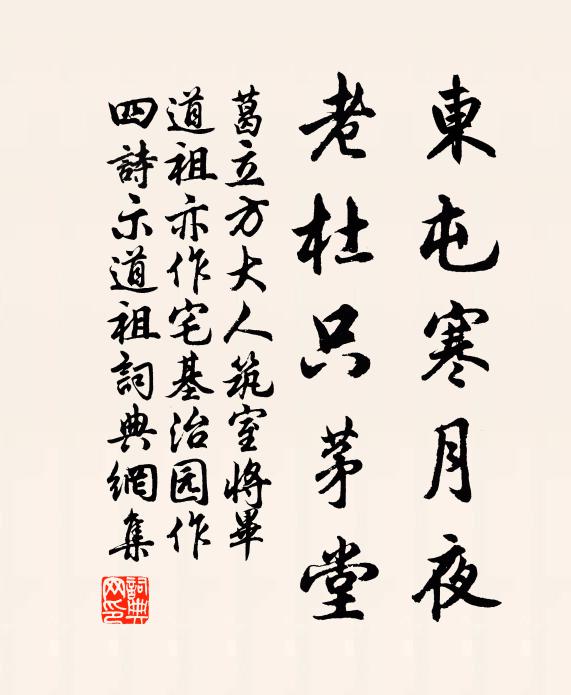 東屯寒月夜
老杜只茅堂
葛立方大人筑室將畢
道祖亦作宅基治园作
四詩示道祖詞典網集
詞典网印